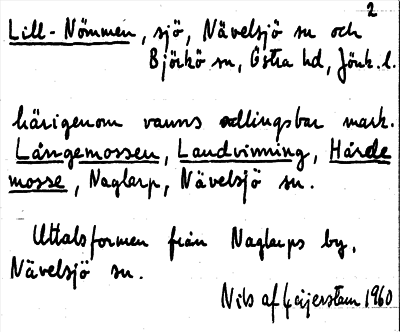 2
Lill-Nömmen, sjö, Nävelsjö sn och
Björkö sn, Östra hd, Jönk.l.
härigenom vanns odlingsbar mark.
Långemossen, Landvinning, Hårde
mosse, Naglarp, Nävelsjö sn.
Uttalsformen från Naglarps by,
Nävelsjö sn.
Nils af Geijerstam 1960